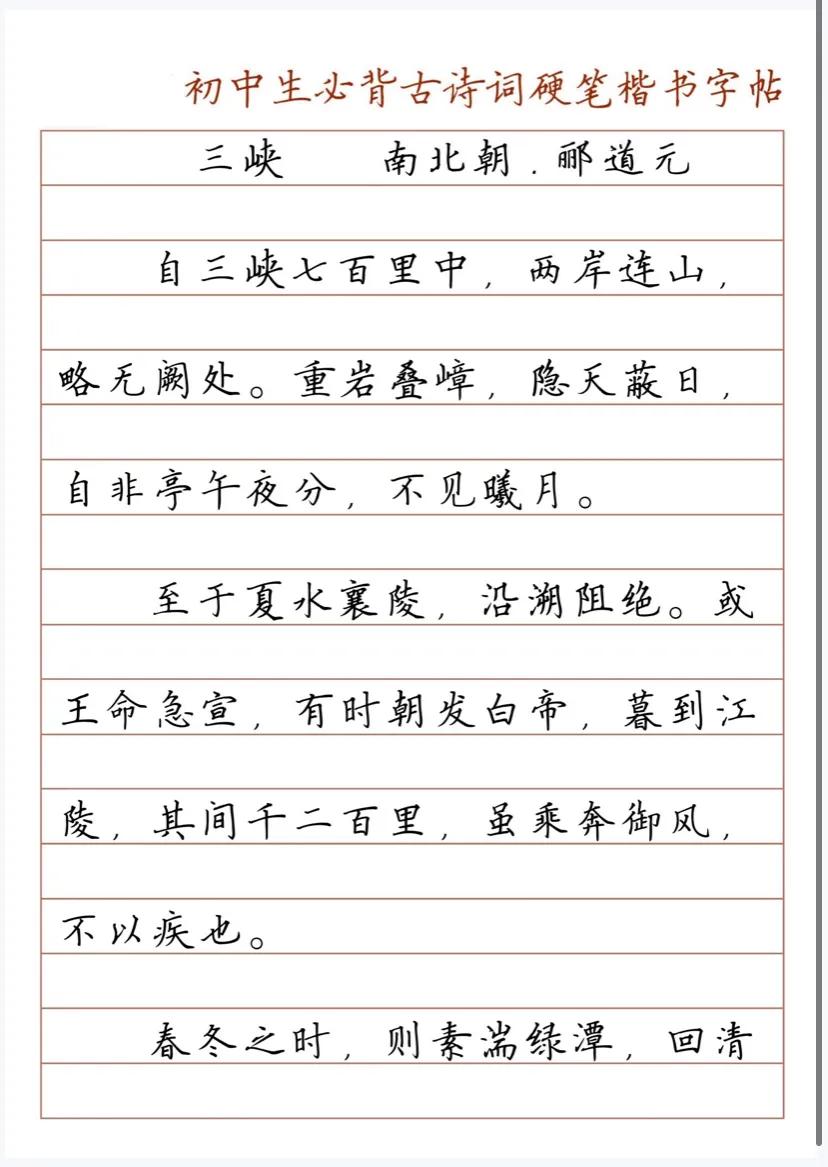 初中生必背古诗词硬笔楷书字帖
三峡 南北朝.郦道元
自三峡七百里中，两岸连山，
略无阙处。重岩叠嶂，隐天蔽日，
自非亭午夜分，不见曦月。
至于夏水襄陵，沿溯阻绝。或
王命急宣，有时朝发白帝，暮到江
陵，其间千二百里，虽乘奔御风，
不以疾也。
春冬之时，则素湍绿潭，回清